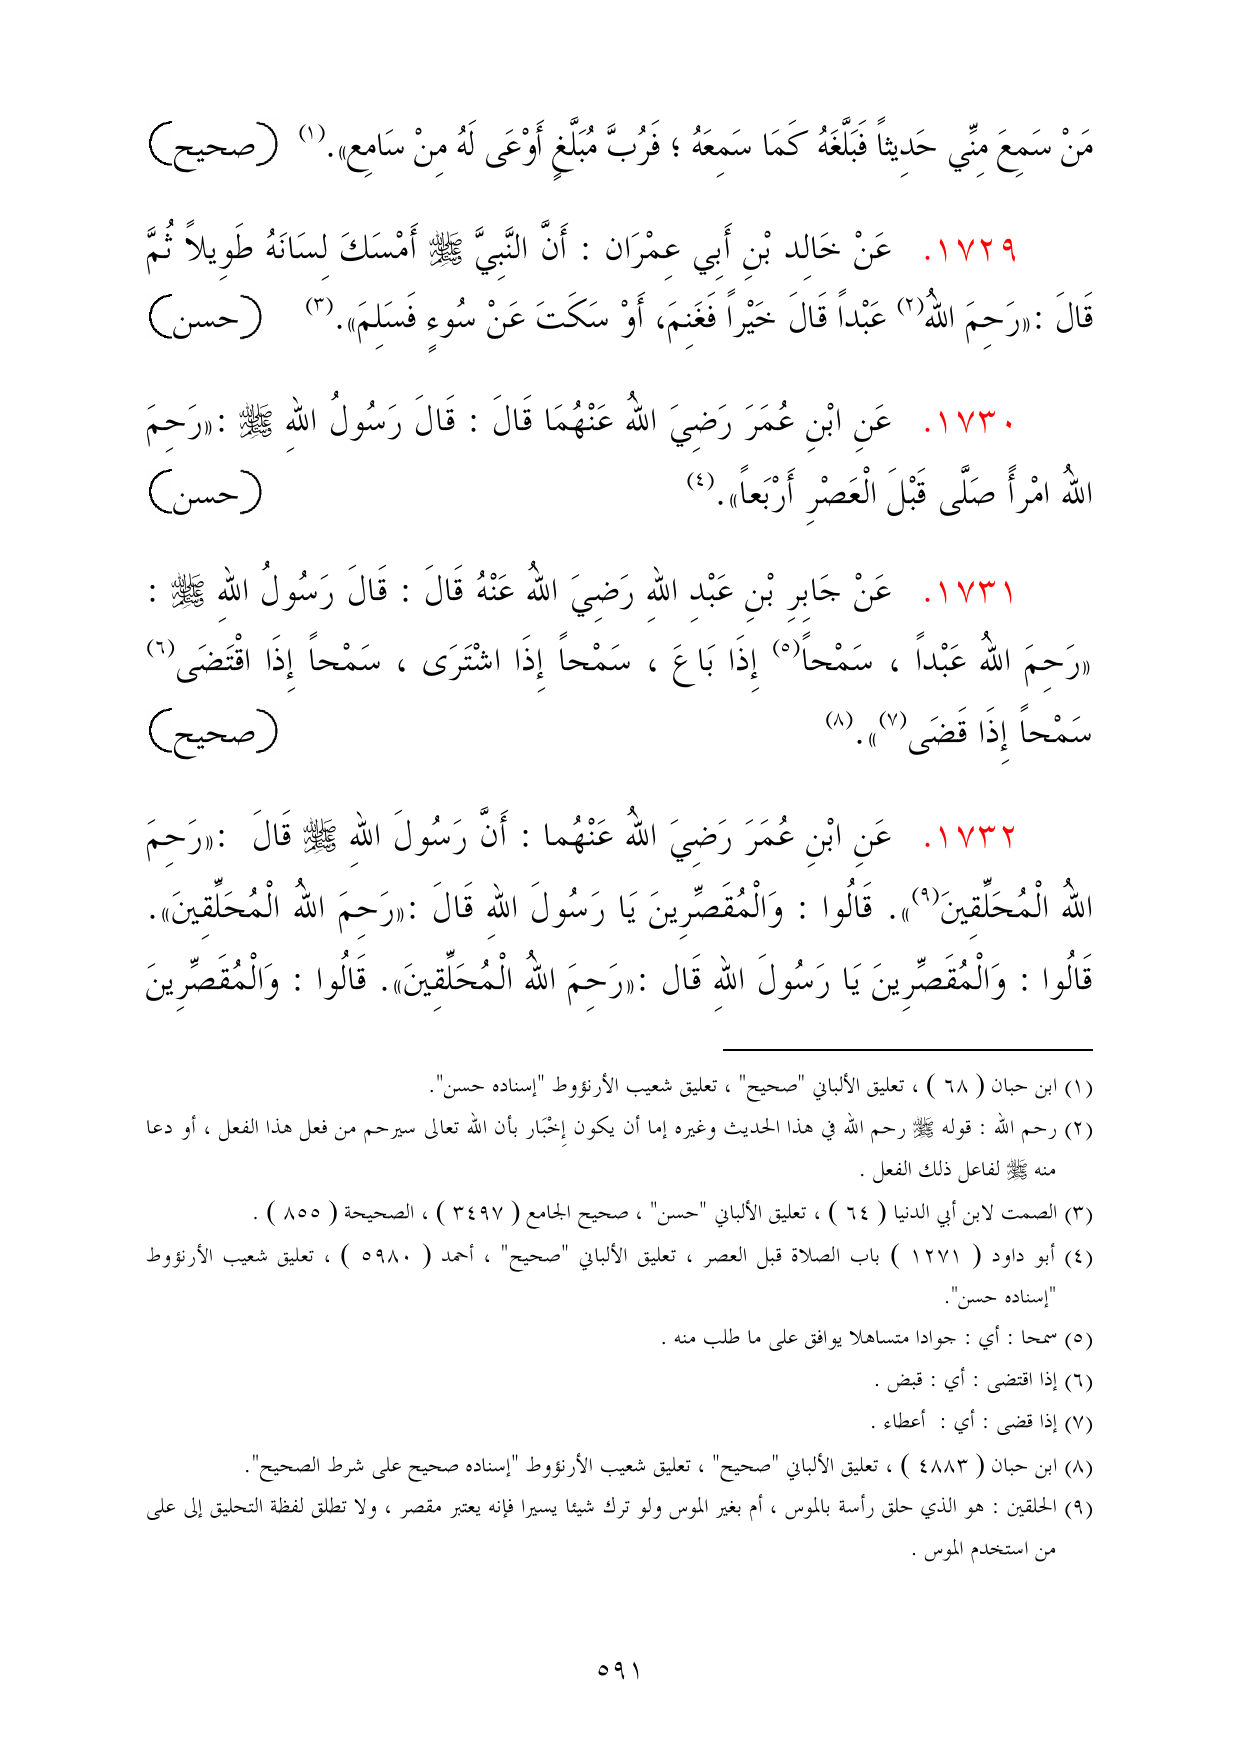 مَنْ سَمِعَ مِنِّي حَدِيثاً فَبَلَّغَهُ كَمَا سَمِعَهُ ؛ فَرُبَّ مُبَلَّغٍ أَوْعَى لَهُ مِنْ سَامِعٍ». (١) (صحيح)
١٧٢٩. عَنْ خَالِدِ بْنِ أَبِي عِمْرَان : أَنَّ النَّبِيَّ ﷺ أَمْسَكَ لِسَانَهُ طَوِيلاً ثُمَّ
قَالَ :«رَحِمَ اللهُ(٢) عَبْداً قَالَ خَيْراً فَغَنِمَ، أَوْ سَكَتَ عَنْ سُوءٍ فَسَلِمَ». (٣) (حسن)
١٧٣٠. عَنِ ابْنِ عُمَرَ رَضِيَ اللهُ عَنْهُمَا قَالَ : قَالَ رَسُولُ اللهِ ﷺ :«رَحِمَ
اللهُ امْرأً صَلَّى قَبْلَ الْعَصْرِ أَرْبَعاً». (٤) (حسن)
١٧٣١. عَنْ جَابِرِ بْنِ عَبْدِ اللهِ رَضِيَ اللهُ عَنْهُ قَالَ : قَالَ رَسُولُ اللهِ ﷺ :
«رَحِمَ اللهُ عَبْداً ، سَمْحاً(٥) إِذَا بَاعَ ، سَمْحاً إِذَا اشْتَرَى ، سَمْحاً إِذَا اقْتَضَى(٦)
سَمْحاً إِذَا قَضَى(٧)». (٨) (صحيح)
١٧٣٢. عَنِ ابْنِ عُمَرَ رَضِيَ اللهُ عَنْهُما : أَنَّ رَسُولَ اللهِ ﷺ قَالَ :«رَحِمَ
اللهُ الْمُحَلِّقِينَ(٩)». قَالُوا : وَالْمُقَصِّرِينَ يَا رَسُولَ اللهِ قَالَ :«رَحِمَ اللهُ الْمُحَلِّقِينَ».
قَالُوا : وَالْمُقَصِّرِينَ يَا رَسُولَ اللهِ قَال :«رَحِمَ اللهُ الْمُحَلِّقِينَ». قَالُوا : وَالْمُقَصِّرِينَ
(١) ابن حبان ( ٦٨ ) ، تعليق الألباني "صحيح" ، تعليق شعيب الأرنؤوط "إسناده حسن".
(٢) رحم الله : قوله ﷺ رحم الله في هذا الحديث وغيره إما أن يكون إِخْبَار بأن الله تعالى سيرحم من فعل هذا الفعل ، أو دعا
منه ﷺ لفاعل ذلك الفعل .
(٣) الصمت لابن أبي الدنيا ( ٦٤ ) ، تعليق الألباني "حسن" ، صحيح الجامع ( ٣٤٩٧ ) ، الصحيحة ( ٨٥٥ ) .
(٤) أبو داود ( ١٢٧١ ) باب الصلاة قبل العصر ، تعليق الألباني "صحيح" ، أحمد ( ٥٩٨٠ ) ، تعليق شعيب الأرنؤوط
"إسناده حسن".
(٥) سمحا : أي : جوادا متساهلا يوافق على ما طلب منه .
(٦) إذا اقتضى : أي : قبض .
(٧) إذا قضى : أي : أعطاء .
(٨) ابن حبان ( ٤٨٨٣ ) ، تعليق الألباني "صحيح" ، تعليق شعيب الأرنؤوط "إسناده صحيح على شرط الصحيح".
(٩) الحلقين : هو الذي حلق رأسة بالموس ، أم بغير الموس ولو ترك شيئا يسيرا فإنه يعتبر مقصر ، ولا تطلق لفظة التحليق إلى على
من استخدم الموس .
٥٩١